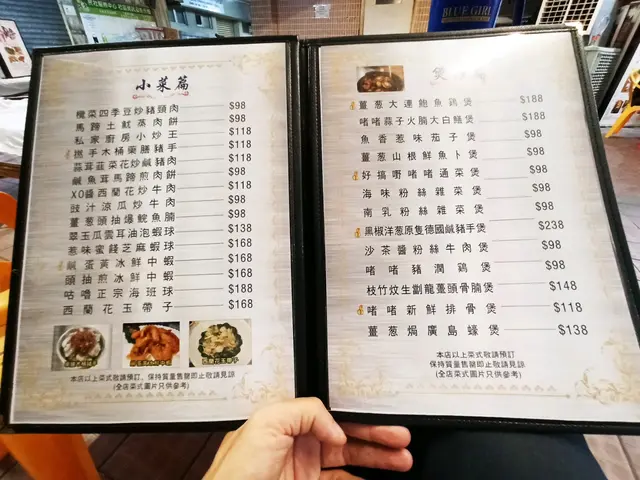 BLUE GIRL
小菜篇
欖菜四季豆炒豬頸肉 $98
馬蹄土魷蒸肉餅 $98
私家廚房小炒王 $118
攪手木桶藥膳豬手 $118
蒜茸韮菜花炒鹹豬肉 $118
鹹魚茸馬蹄煎肉餅 $98
XO醬西蘭花炒牛肉 $118
豉汁涼瓜炒牛肉 $98
薑葱頭抽爆鯇魚腩 $98
翠玉瓜雲耳油泡蝦球 $138
惹味蜜餞芝麻蝦球 $168
鹹蛋黃冰鮮中蝦 $168
頭抽煎冰鮮中蝦 $168
咕嚕正宗海班球 $188
西蘭花玉帶子 $168
本店以上菜式敬請預訂、保持質量售罄即止敬請見諒
(全店菜式圖片只供參考)
煲
薑葱大連鮑魚鷄煲 $188
啫啫蒜子火腩大白鱔煲 $188
魚香惹味茄子煲 $98
薑葱山根鮮魚卜煲 $98
好搞嘢啫啫通菜煲 $98
海味粉絲雜菜煲 $98
南乳粉絲雜菜煲 $98
黑椒洋葱原隻德國鹹豬手煲 $238
沙茶醬粉絲牛肉煲 $98
啫啫豬潤鷄煲 $98
枝竹炆生劏龍躉頭骨腩煲 $148
啫啫新鮮排骨煲 $118
薑葱焗廣島蠔煲 $138
本店以上菜式敬請預訂
保持質量售罄即止敬請見諒
(全店菜式圖片只供參考)